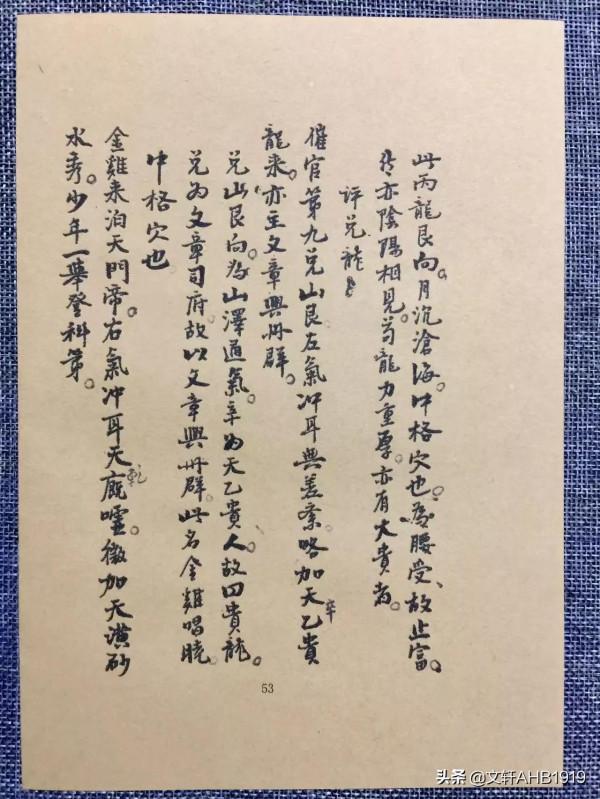 此丙龍艮向。月沉滄海。中格穴也。為腰受、故止富。
亦陰陽相見。苟龍力重厚。亦有大貴者。
評兌龍
催官第九兌山艮左氣冲耳與差棄略加天乙辛貴
龍來。亦主文章興冊群。
兌山艮向。為山澤通氣。辛為天乙貴人。故曰貴龍。
兌為文章司府。故以文章興冊群。此名金雞唱曉。
中格穴也
金雞来泊天門帝。右氣冲耳天廐乾噓。微加天潢砂
水秀。少年一舉登科第。
53
头条 @文轩AHB1919